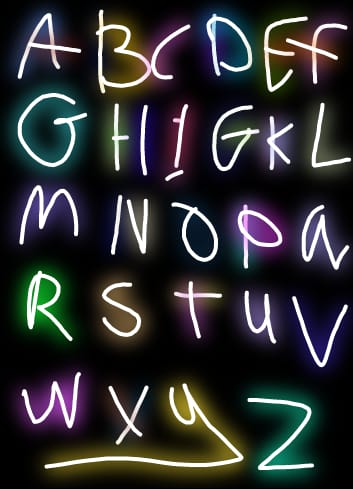 A B C D E F
G H I G K L
M N O P Q
R S T U V
W X Y Z